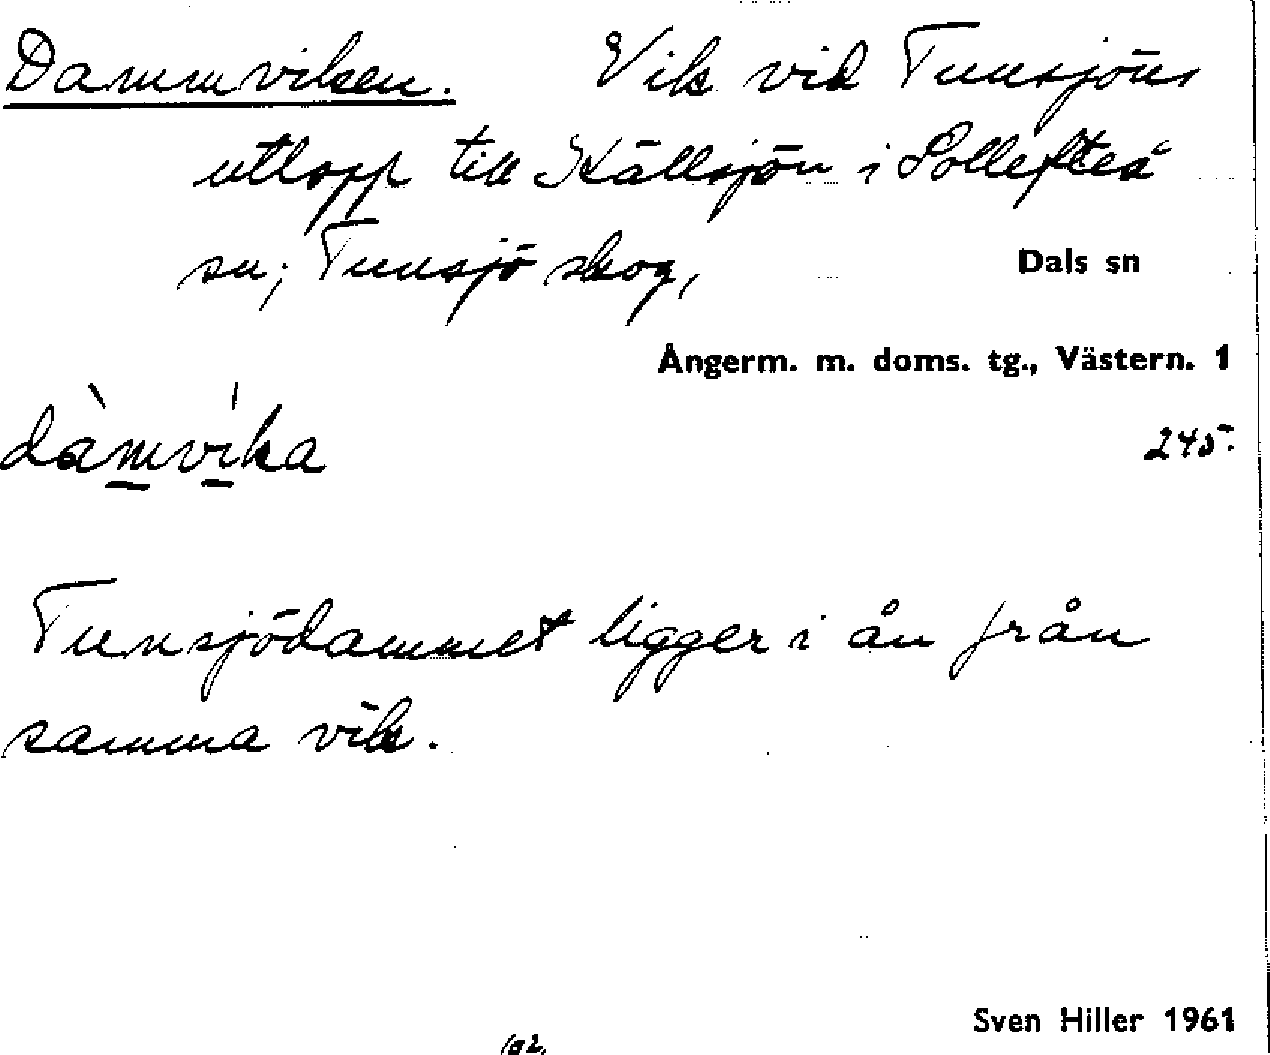 Dammviken. Vik vid Tunsjöns
utlopp till Källsjön i Sollefteå
sn; Tunsjö skog, Dals sn
Ångerm. m. doms. tg., Västern. 1
dàmvi̍ka 245.
Tunsjödammet ligger i ån från
samma vik.
Sven Hiller 1961